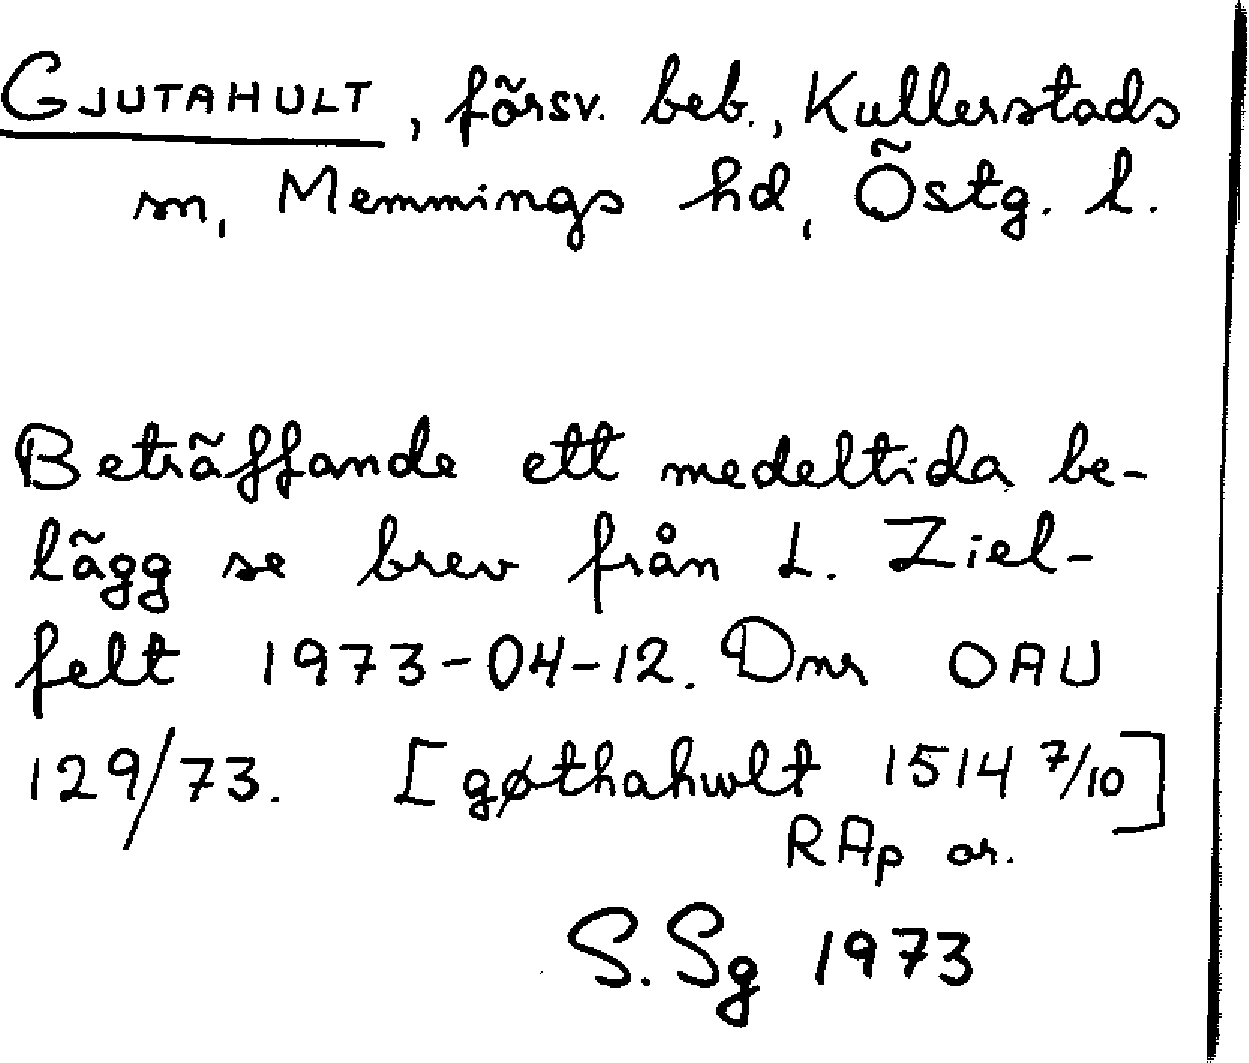 GJUTAHULT, försv. beb., Kullerstads
sn, Memmings hd, Östg. l.
Beträffande ett medeltida be-
lägg se brev från L. Ziel-
felt 1973-04-12. Dnr OAU
129/73. [gøthahwlt 1514 7/10]
RAp or.
S. Sg 1973